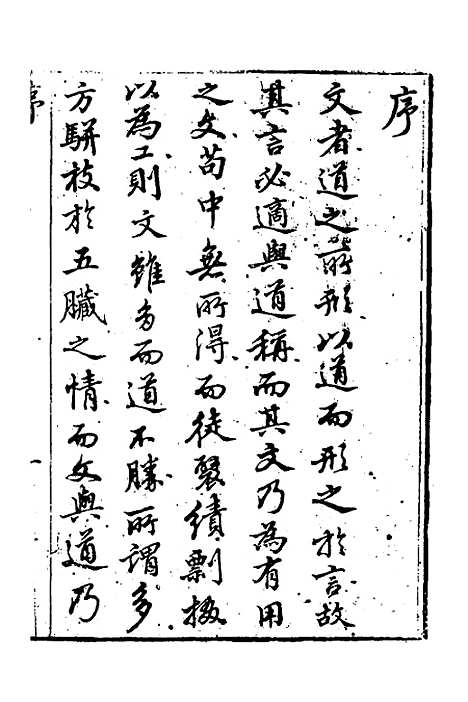 序
文者道之所形以道而形之於言故
其言必適與道稱而其文乃為有用
之文苟中無所得而徒襞績剽掇
以為工則文雖多而道不勝所謂多
方駢枝於五臟之情而文與道乃
序
一